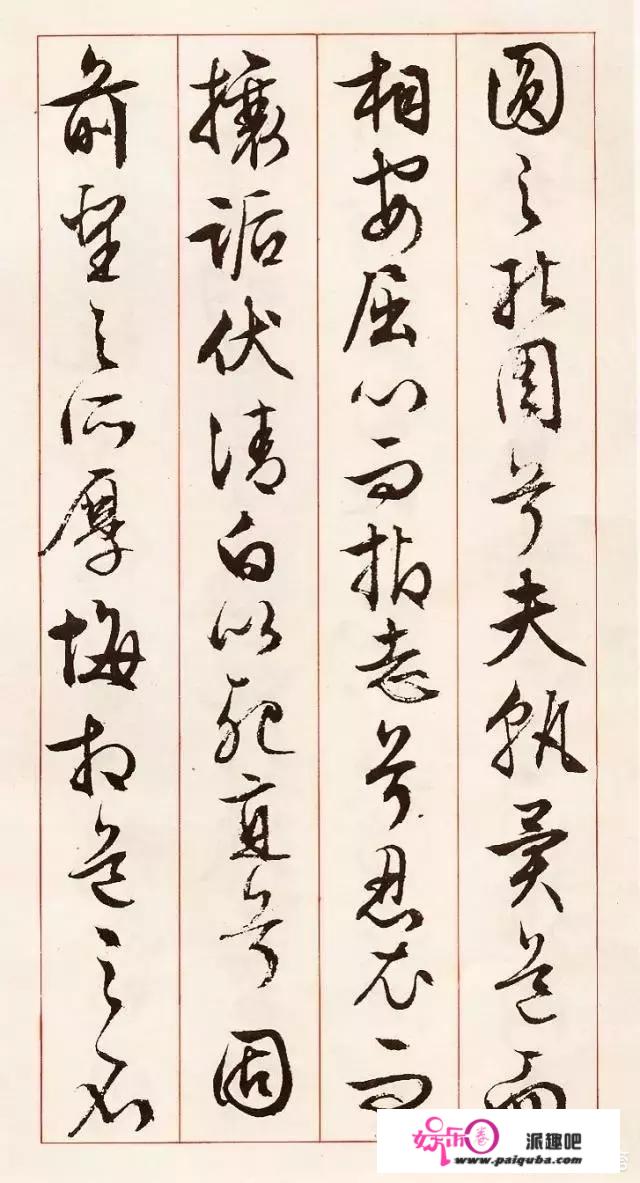 圓之能周兮夫孰異道而
相安屈心而抑志兮忍尤而
攘詬伏清白以死直兮固
前聖之所厚悔相道之不
娱乐圈 派趣吧
www.paiquba.com